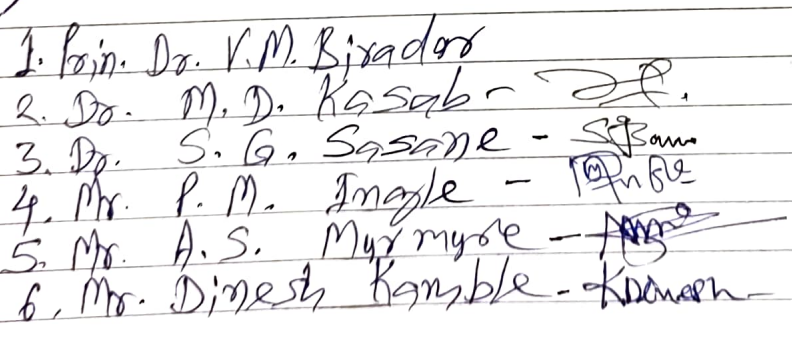 1. Prin. Dr. V.M. Biradar
2. Dr. M. D. Kasab -
3. Dr. S. G. Sasane -
4. Mr. P. M. Ingle -
5. Mr. A. S. Murmure -
6. Mr. Dinesh Kamble -